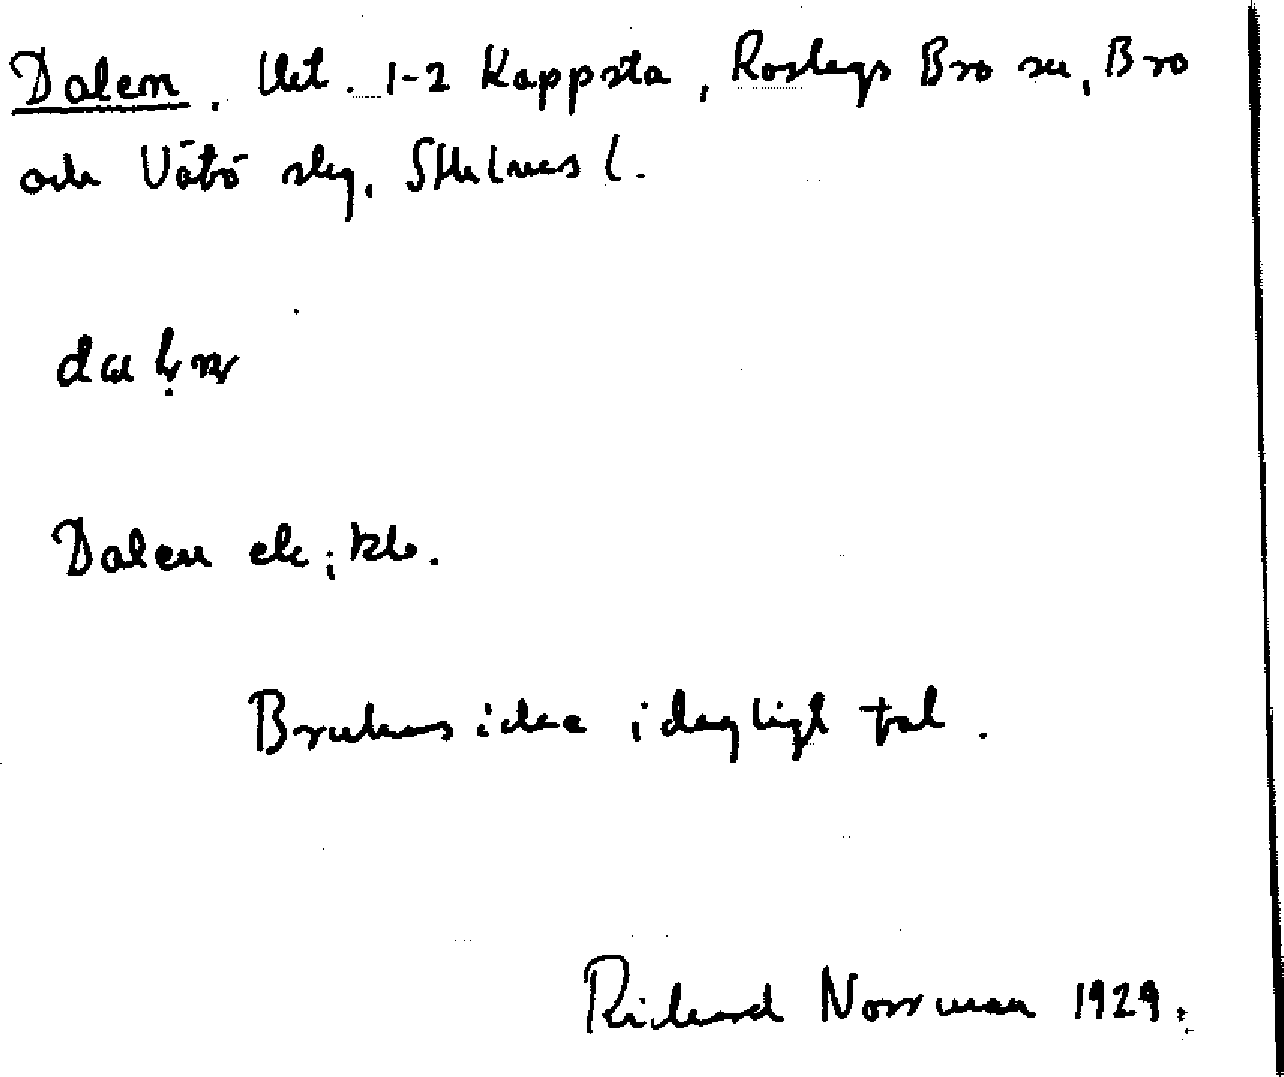 Dalen, Ut. 1-2 Kappsta, Roslags Bro sn, Bro
och Vätö slg, Sthlms l.
Dalen ek; kb.
Brukas icke i dagligt tal.
Richard Norrman 1929.